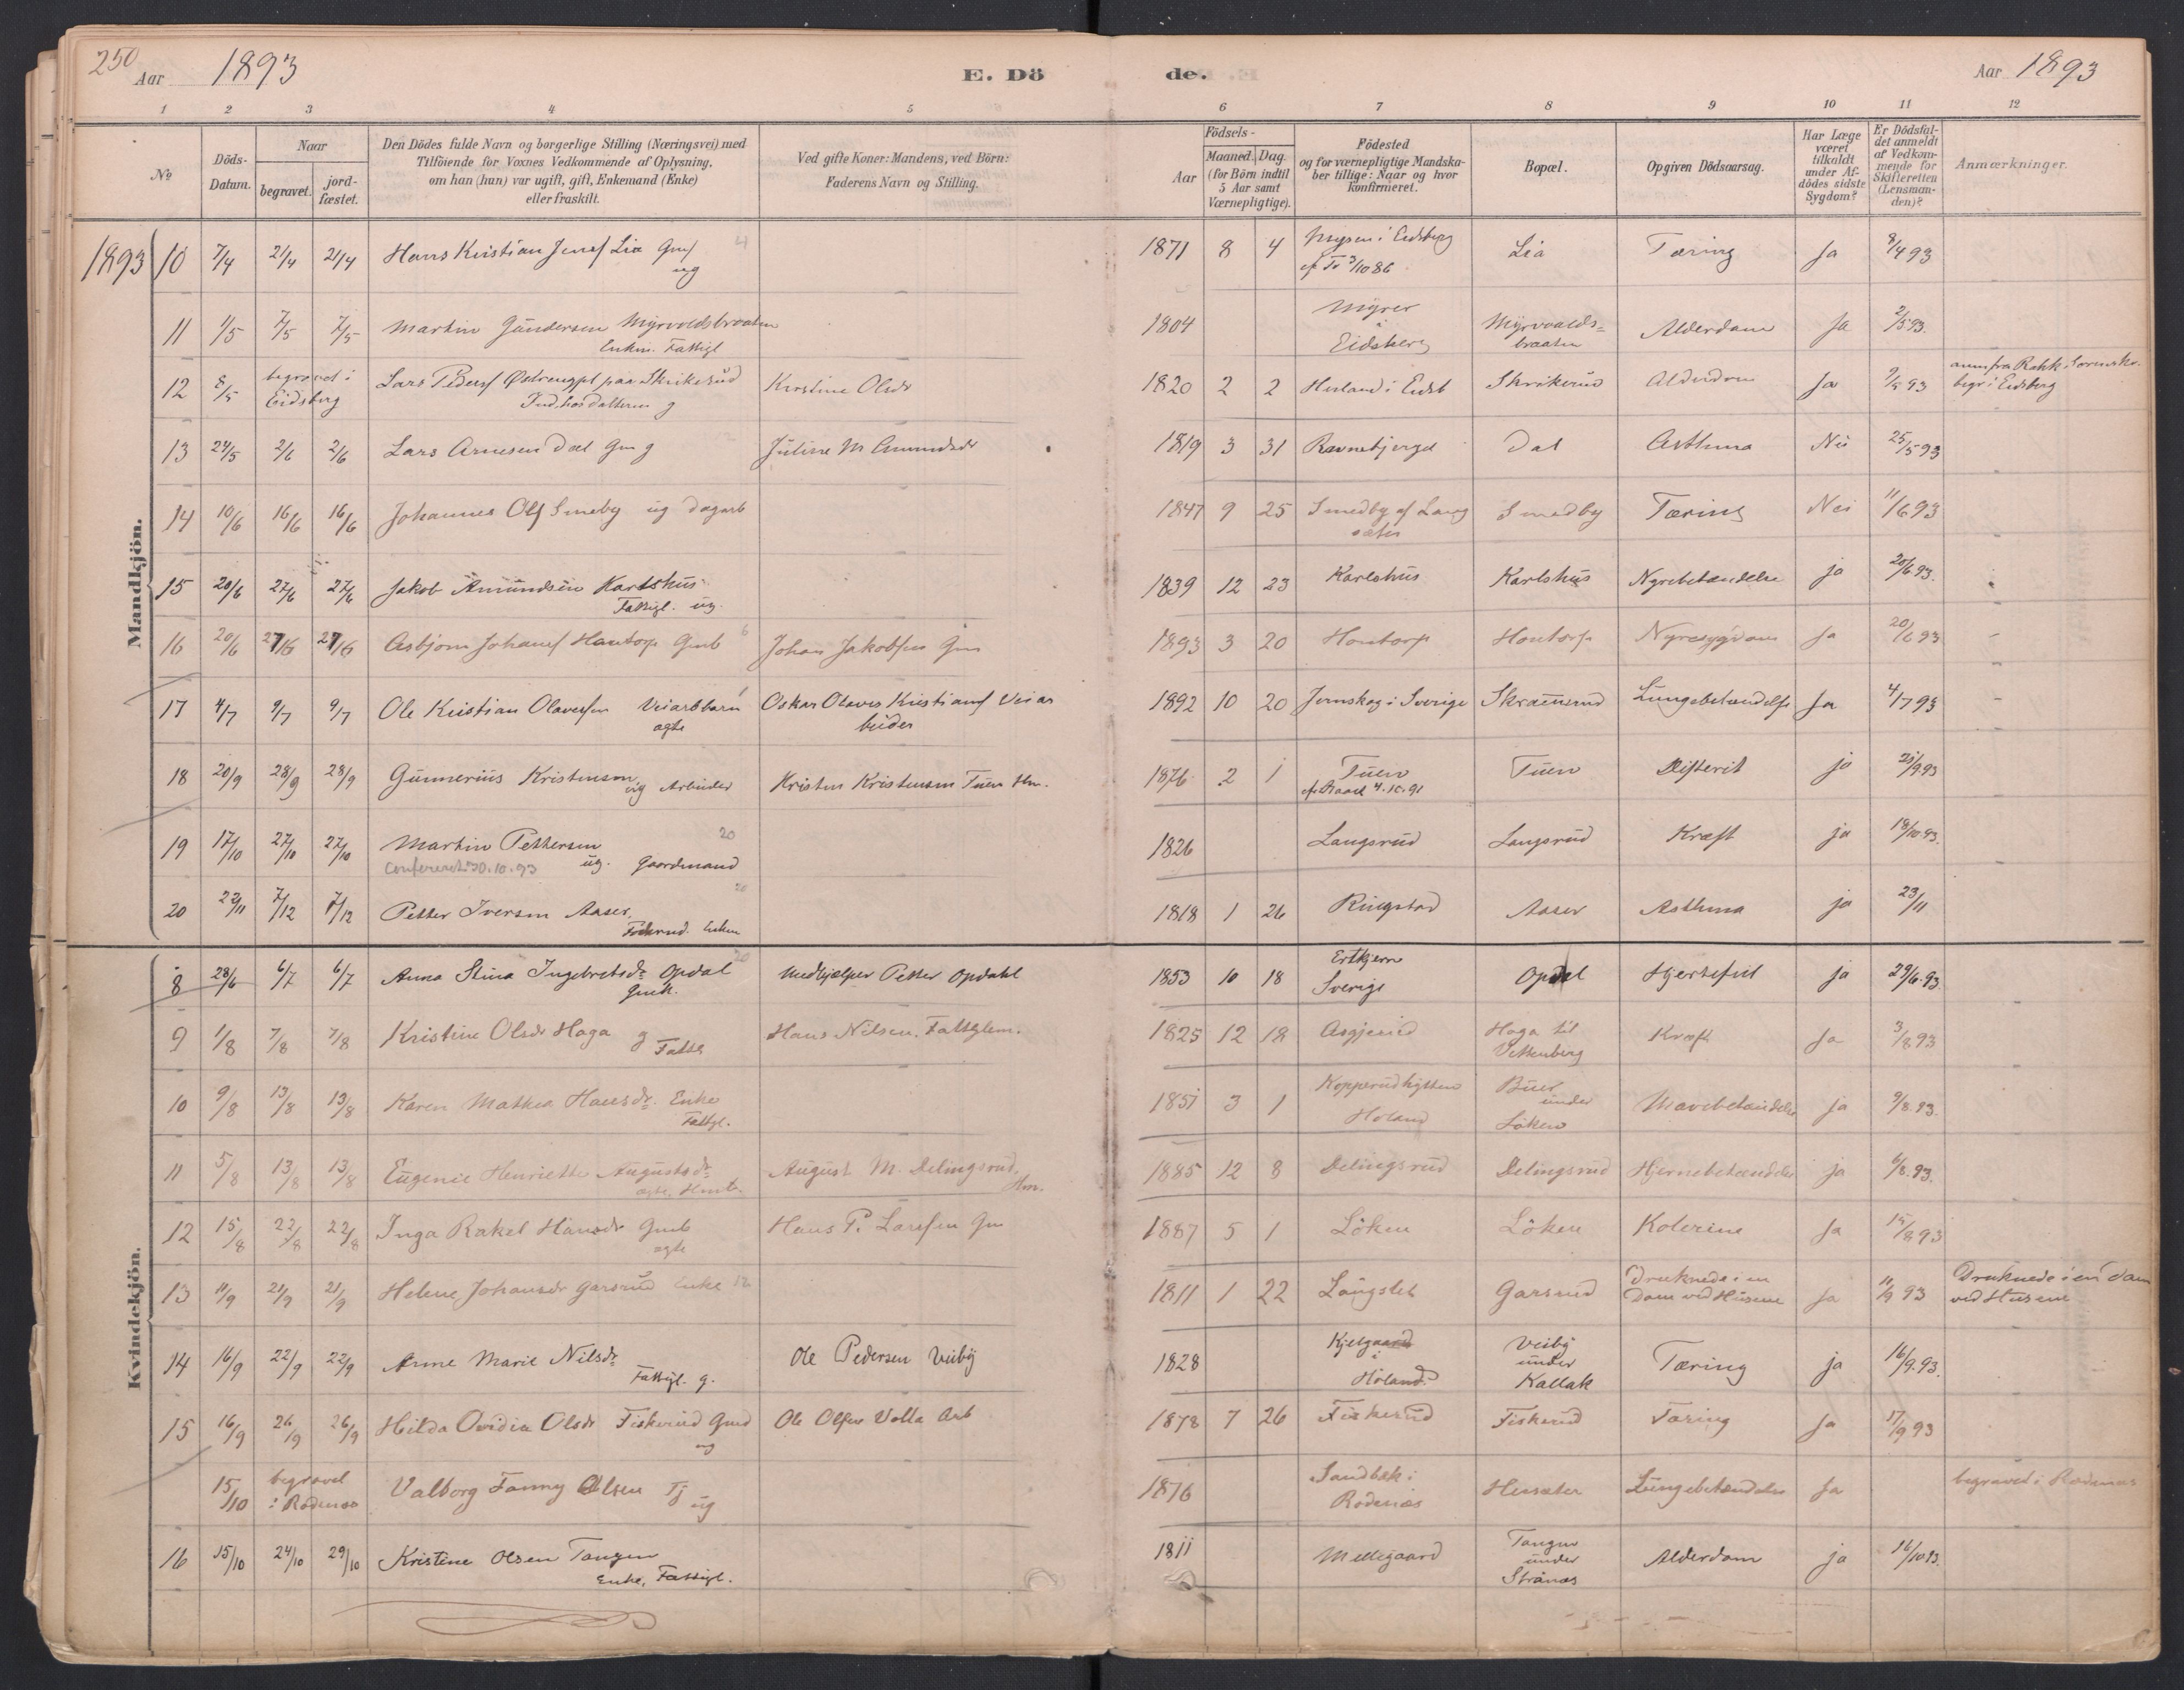 250 Aar 1893 E. Dö de. Aar 1893
1 2 3 4 5 6 7 8 9 10 11 12
No
Döds-
Datum.
Naar
begravet.
jord-
fæstet.
Den Dödes fulde Navn og borgerlige Stilling (Næringsvei) med
Tilföiende for Voxnes Vedkommende af Oplysning,
om han (hun) var ugift, gift, Enkemand (Enke)
eller fraskilt.
Ved gifte Koner: Mandens, ved Börn:
Faderens Navn og Stilling.
Födsels-
Aar
Maaned. Dag.
(for Börn indtil
5 Aar samt
Værnepligtige).
Födested
og for værnepligtige Mandska-
ber tillige: Naar og hvor
konfirmeret.
Bopæl.
Opgiven Dödsaarsag.
Har Læge
været
tilkaldt
under Af-
dödes sidste
Sygdom?
Er Dödsfal-
det anmeldt
af Vedkom-
mende for
Skifteretten
(Lensman-
den)?
Anmærkninger.
Mandkjön.
1893 10 7/4 21/4 21/4 Hans Kristian Jensf Lia Gmf 4 1871 8 4 Mysen i Eidsberg Lia Tæring Ja 8/4 93
ug 3/10 86
11 1/5 7/5 7/5 Martin Gundersen Myrvoldsbraaten 1804 Myrer Myrvoolds= Alderdom Ja 2/5 93.
Enkm. Fattigl i Eidsberg braaten
12 8/5 begravet i Eidsberg Lars Pedersf Østrengpl paa Skrikerud Kirstine Olsdr 1820 2 2 Herland i Eidsb Skrikerud Alderdom Ja 9/5 93
Ind. hos datteren g begr i Eidsberg
13 24/5 2/6 2/6 Lars Arnesen Dal Gm g Juline M Amundsdr 1819 3 31 Ravnebjerget Dal Asthma Nei 25/5 93
14 10/6 16/6 16/6 Johannes Olsf Smeby ug dagarb 1847 9 25 Smedby af Lang Smedby Tæring Nei 11/6 93
sæter
15 20/6 27/6 27/6 Jakob Amundsen Karlshus 1839 12 23 Karlshus Karlshus Nyrebetændelse ja 20/6 93.
Fattigl. ug.
16 20/6 27/6 27/6 Asbjørn Johansf Hontorp Gmb 6 Johan Jakobsen Gm 1893 3 20 Hontorp Hontorp Nyresygdom Ja 20/6 93
17 4/7 9/7 9/7 Ole Kristian Olavesen Veiarbbarn Oskar Olaves Kristiansf Veiar 1892 10 20 Jernskog i Sverige Skramrud Lungebetændelse Ja 4/7 93
ægte beider
18 20/9 28/9 28/9 Gunnerius Kristensen ug Arbeider Kristen Kristensen Tuen Hm. 1876 2 1 Tuen Tuen Difterit ja 21/9.93
4.10.91
19 17/10 27/10 27/10 Martin Pettersen 20 1826 Langsrud Langsrud Kræft ja 18/10 93.
Confereret 30.10.93 ug. Gaardmand
20 22/11 7/12 7/12 Petter Iversen Aaser. 20 1818 1 26 Ringstad Aaser Asthma ja 23/11
Föderaad. Enkem
Kvindekjön.
8 28/6 6/7 6/7 Anna Stina Ingebretsdr. Opdal 20 Medhjelper Petter Opdahl 1853 10 18 Ertkjern Opdal Hjertefeil ja 29/6.93.
Gmk. Sverige
9 1/8 7/8 7/8 Kristine Olsdr Haga g Hans Nilsen. Fattiglem. 1825 12 18 Asgjerud Haga til Kræft Ja 3/8 93
Fattl Vettenberg
10 9/8 13/8 13/8 Karen Mathea Hansdr. Enke 1851 3 1 Kopperudhytten Buer Mavebetændelse ja 9/8.93.
Fattgl. Høland under Löken
11 5/8 13/8 13/8 Eugenie Henriette Augustsdr. August M. Delingsrud. 1885 12 8 Delingsrud Delingsrud Hjernebetændelse ja 6/8.93.
ægte. Hm.
12 15/8 22/8 22/8 Inga Rakel Hansdr Gmb Hans P. Larsen Gm 1887 5 1 Löken Löken Kolerine Ja 15/8 93
ægte
13 11/9 21/9 21/9 Helene Johansdr Garsrud Enke 12 1811 1 22 Langslet Garsrud Druknede i en Ja 11/9 93 Druknede i en Dam
Dam ved Husene ved Husene
14 16/9 22/9 22/9 Anne Marie Nilsdr. Ole Pedersen Veiby 1828 Kjelgaard Veiby Tæring ja 16/9.93.
Fattigl. g. i Høland. under Kallak
15 16/9 26/9 26/9 Hilda Ovidia Olsdr Fiskerud Gmd Ole Olsen Volla Arb 1878 7 26 Fiskerud Fiskerud Tæring Ja 17/9 93
ug
15/10 begravet i Rödenes Valborg Fanny Olsen Tj 1876 Sandbæk i Hersæter Lungebetændelse Ja begravet i Rødenes
ug Rödenæs
16 15/10 24/10 29/10 Kristine Olsen Tangen 1811 Mellegaard Tangen Alderdom ja 16/10 93.
Enke, Fattigl. under Strånæs